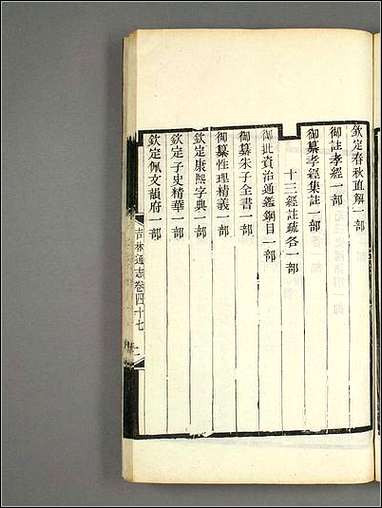 欽定春秋直解一部
御註孝經一部
御纂孝經集註一部
十三經註疏各一部
御批資治通鑑鋼目一部
御纂朱子全書一部
御纂性理精義一部
欽定康熙字典一部
欽定子史精華一部
欽定佩文韻府一部
吉林通志卷四十七 二